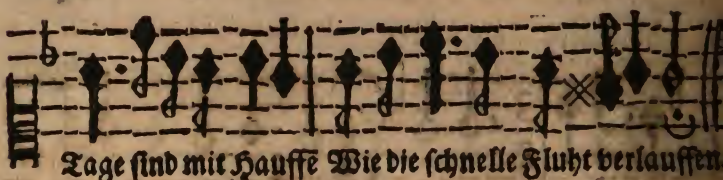 Tage sind mit Hauffē Wie die schnelle Fluht verlauffen